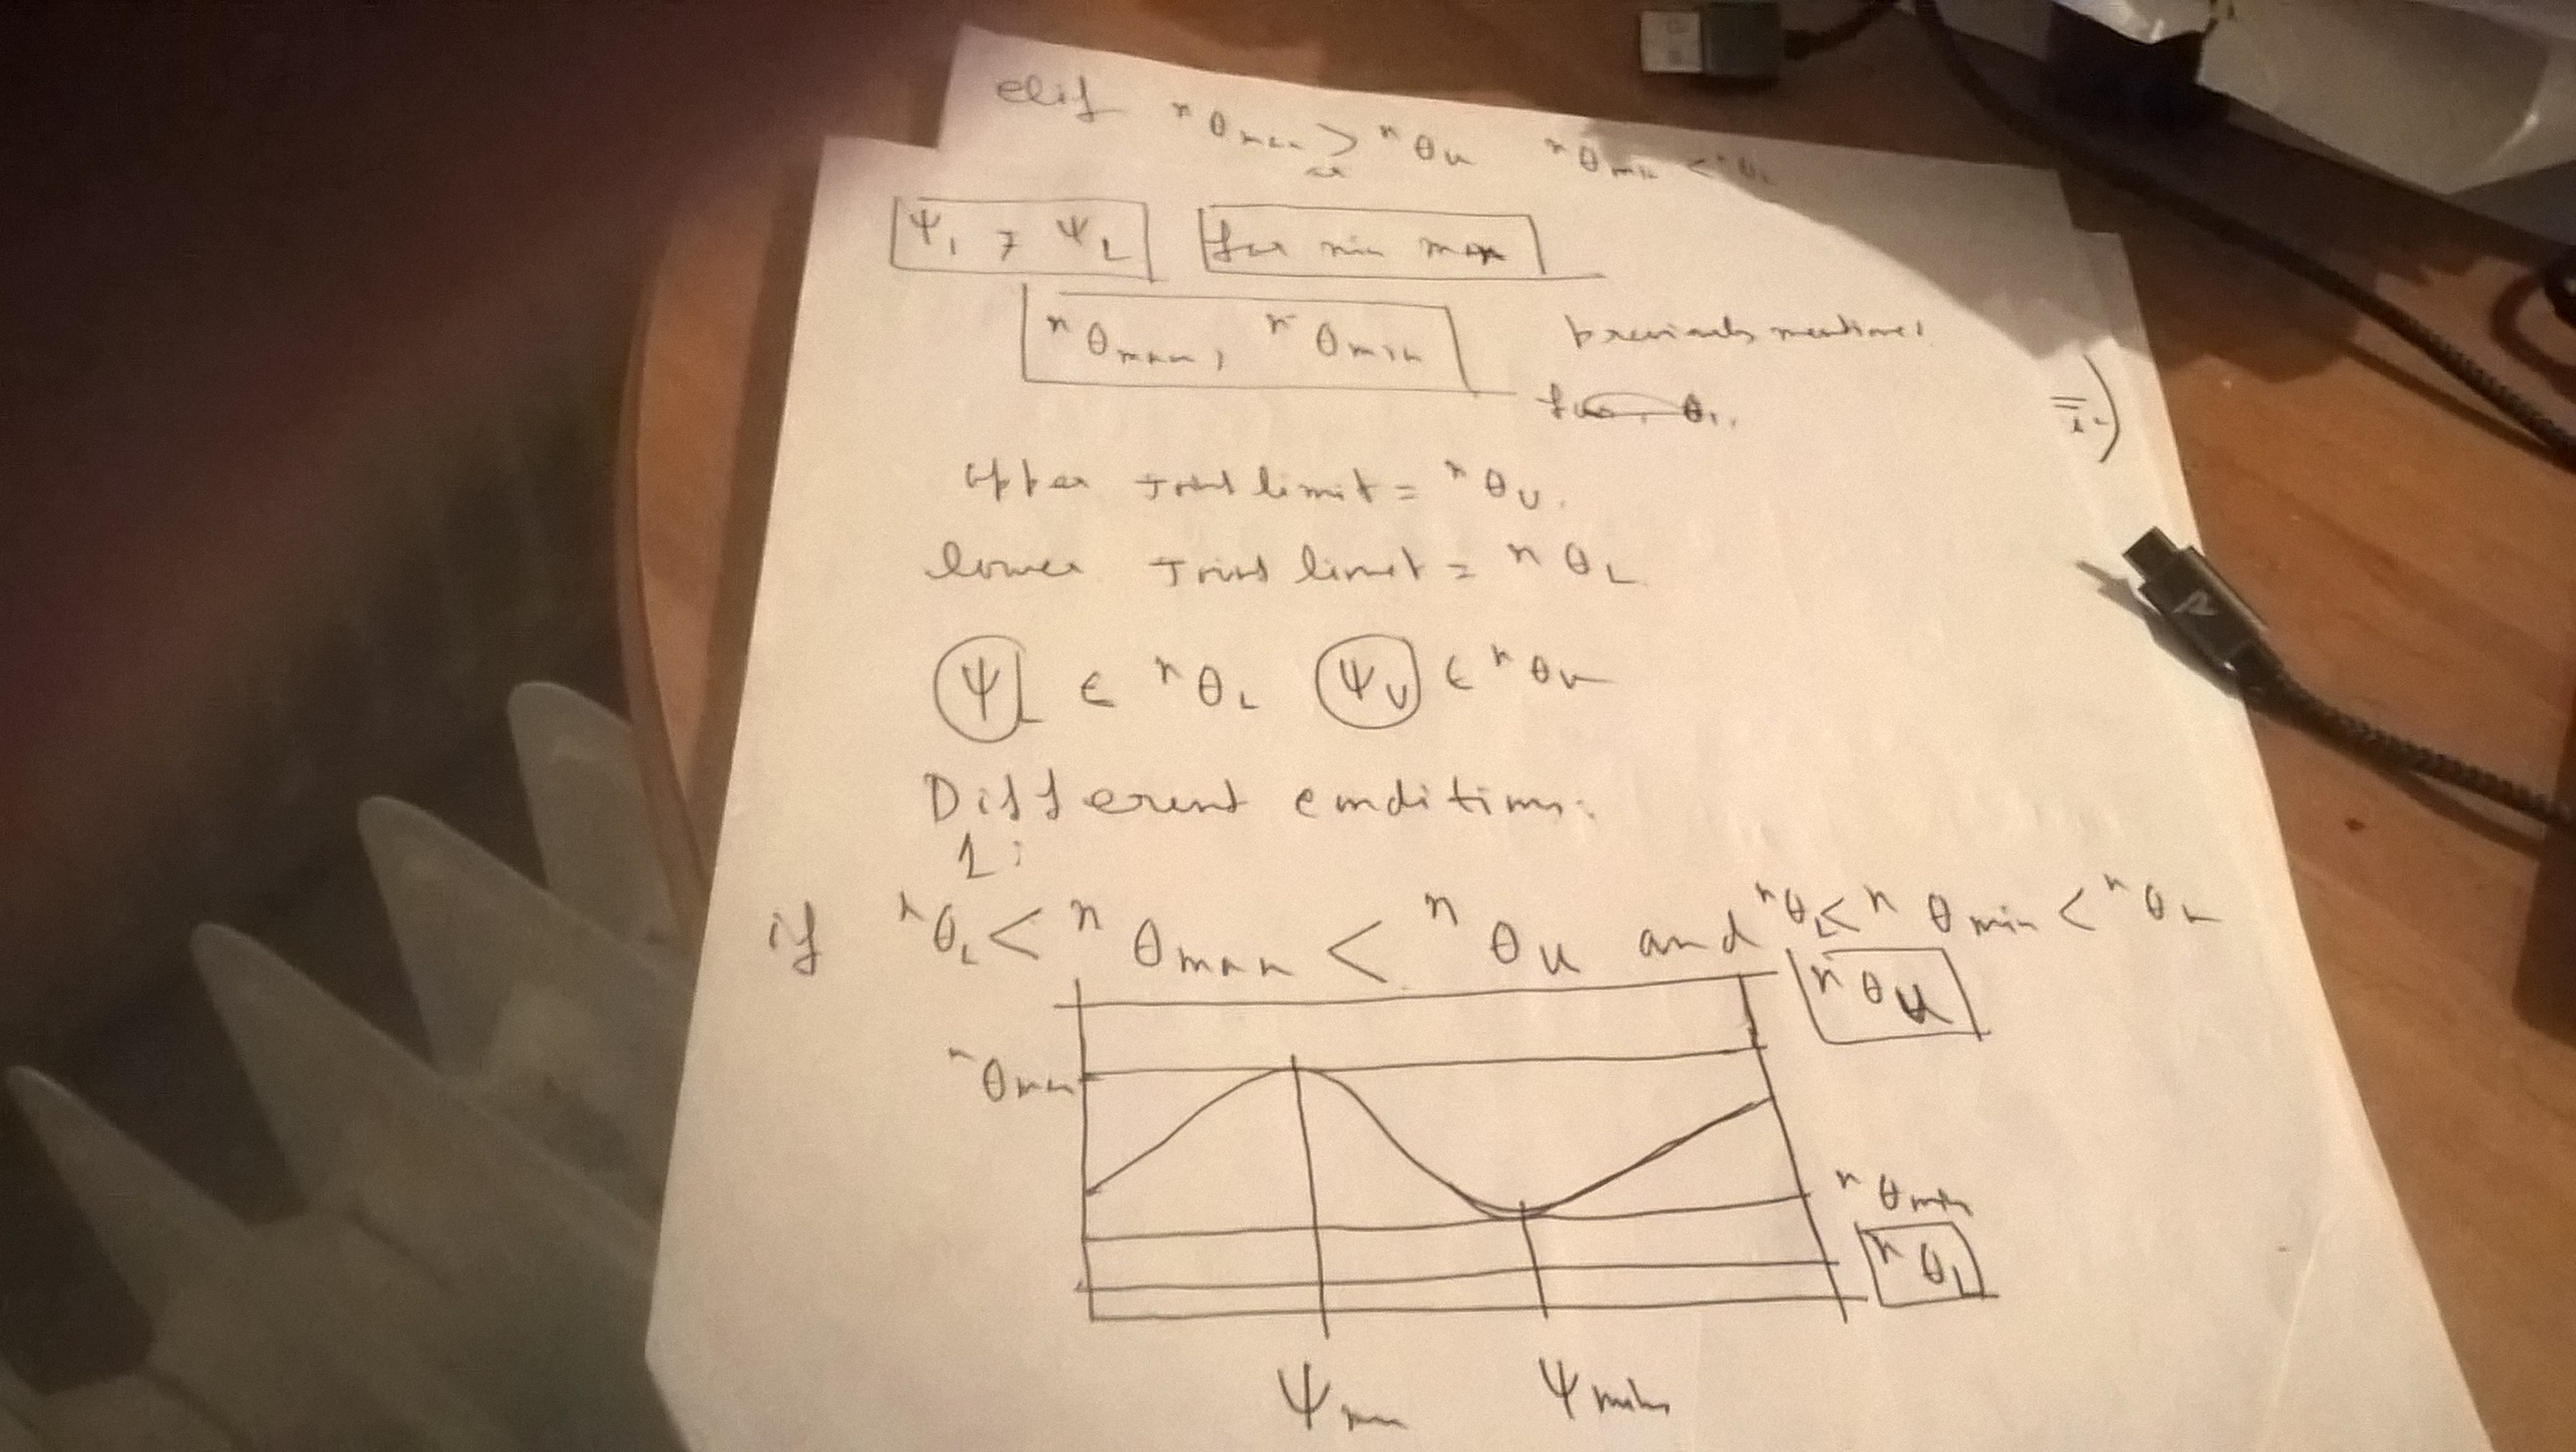 elif ⁿθmax > ⁿθu ⁿθmin <
Ψ₁ , Ψ₂ for min max
ⁿθmax, ⁿθmin previously mentioned
for θ₁.
Upper Joint limit = ⁿθU.
lower Joint limit = ⁿθL
ΨL ∈ ⁿθL ΨU ∈ ⁿθU
Different conditions:
1:
if ⁿθL < ⁿθmax < ⁿθu and ⁿθL < ⁿθmin < ⁿθu
ⁿθu
ⁿθmax
ⁿθmin
ⁿθL
Ψmax Ψmin